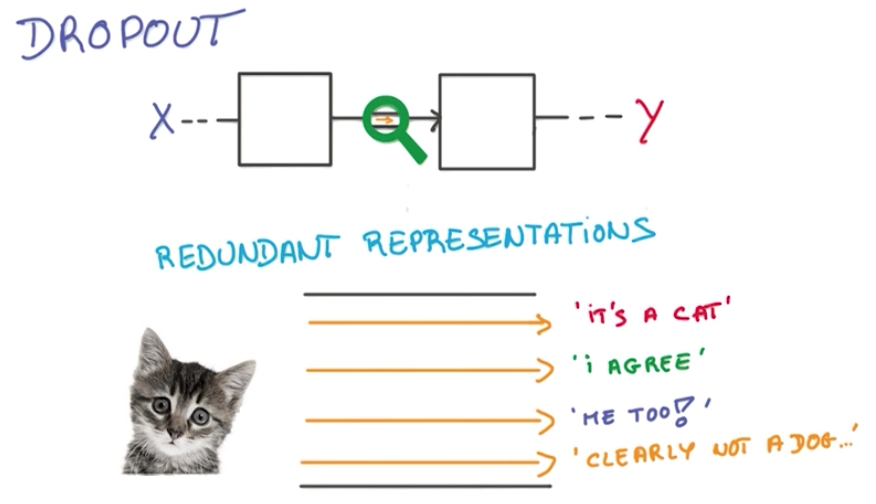 DROPOUT
X
Y
REDUNDANT REPRESENTATIONS
'iT'S A CAT'
'i AGREE'
'ME TOO!'
'CLEARLY NOT A DOG...'